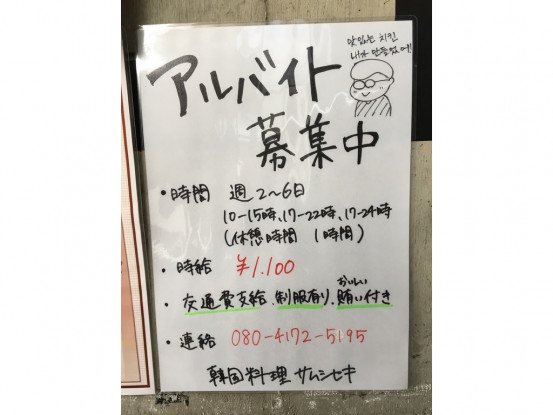 アルバイト
募集中
맛있는 치킨
내가 만들었어!
・時間 週2〜6日
10-15時、17-22時、17-24時
(休憩時間 1時間)
・時給 ¥1.100
おいしい
・交通費支給、制服有り、賄い付き
・連絡 080-4172-5195
韓国料理 サムシセキ